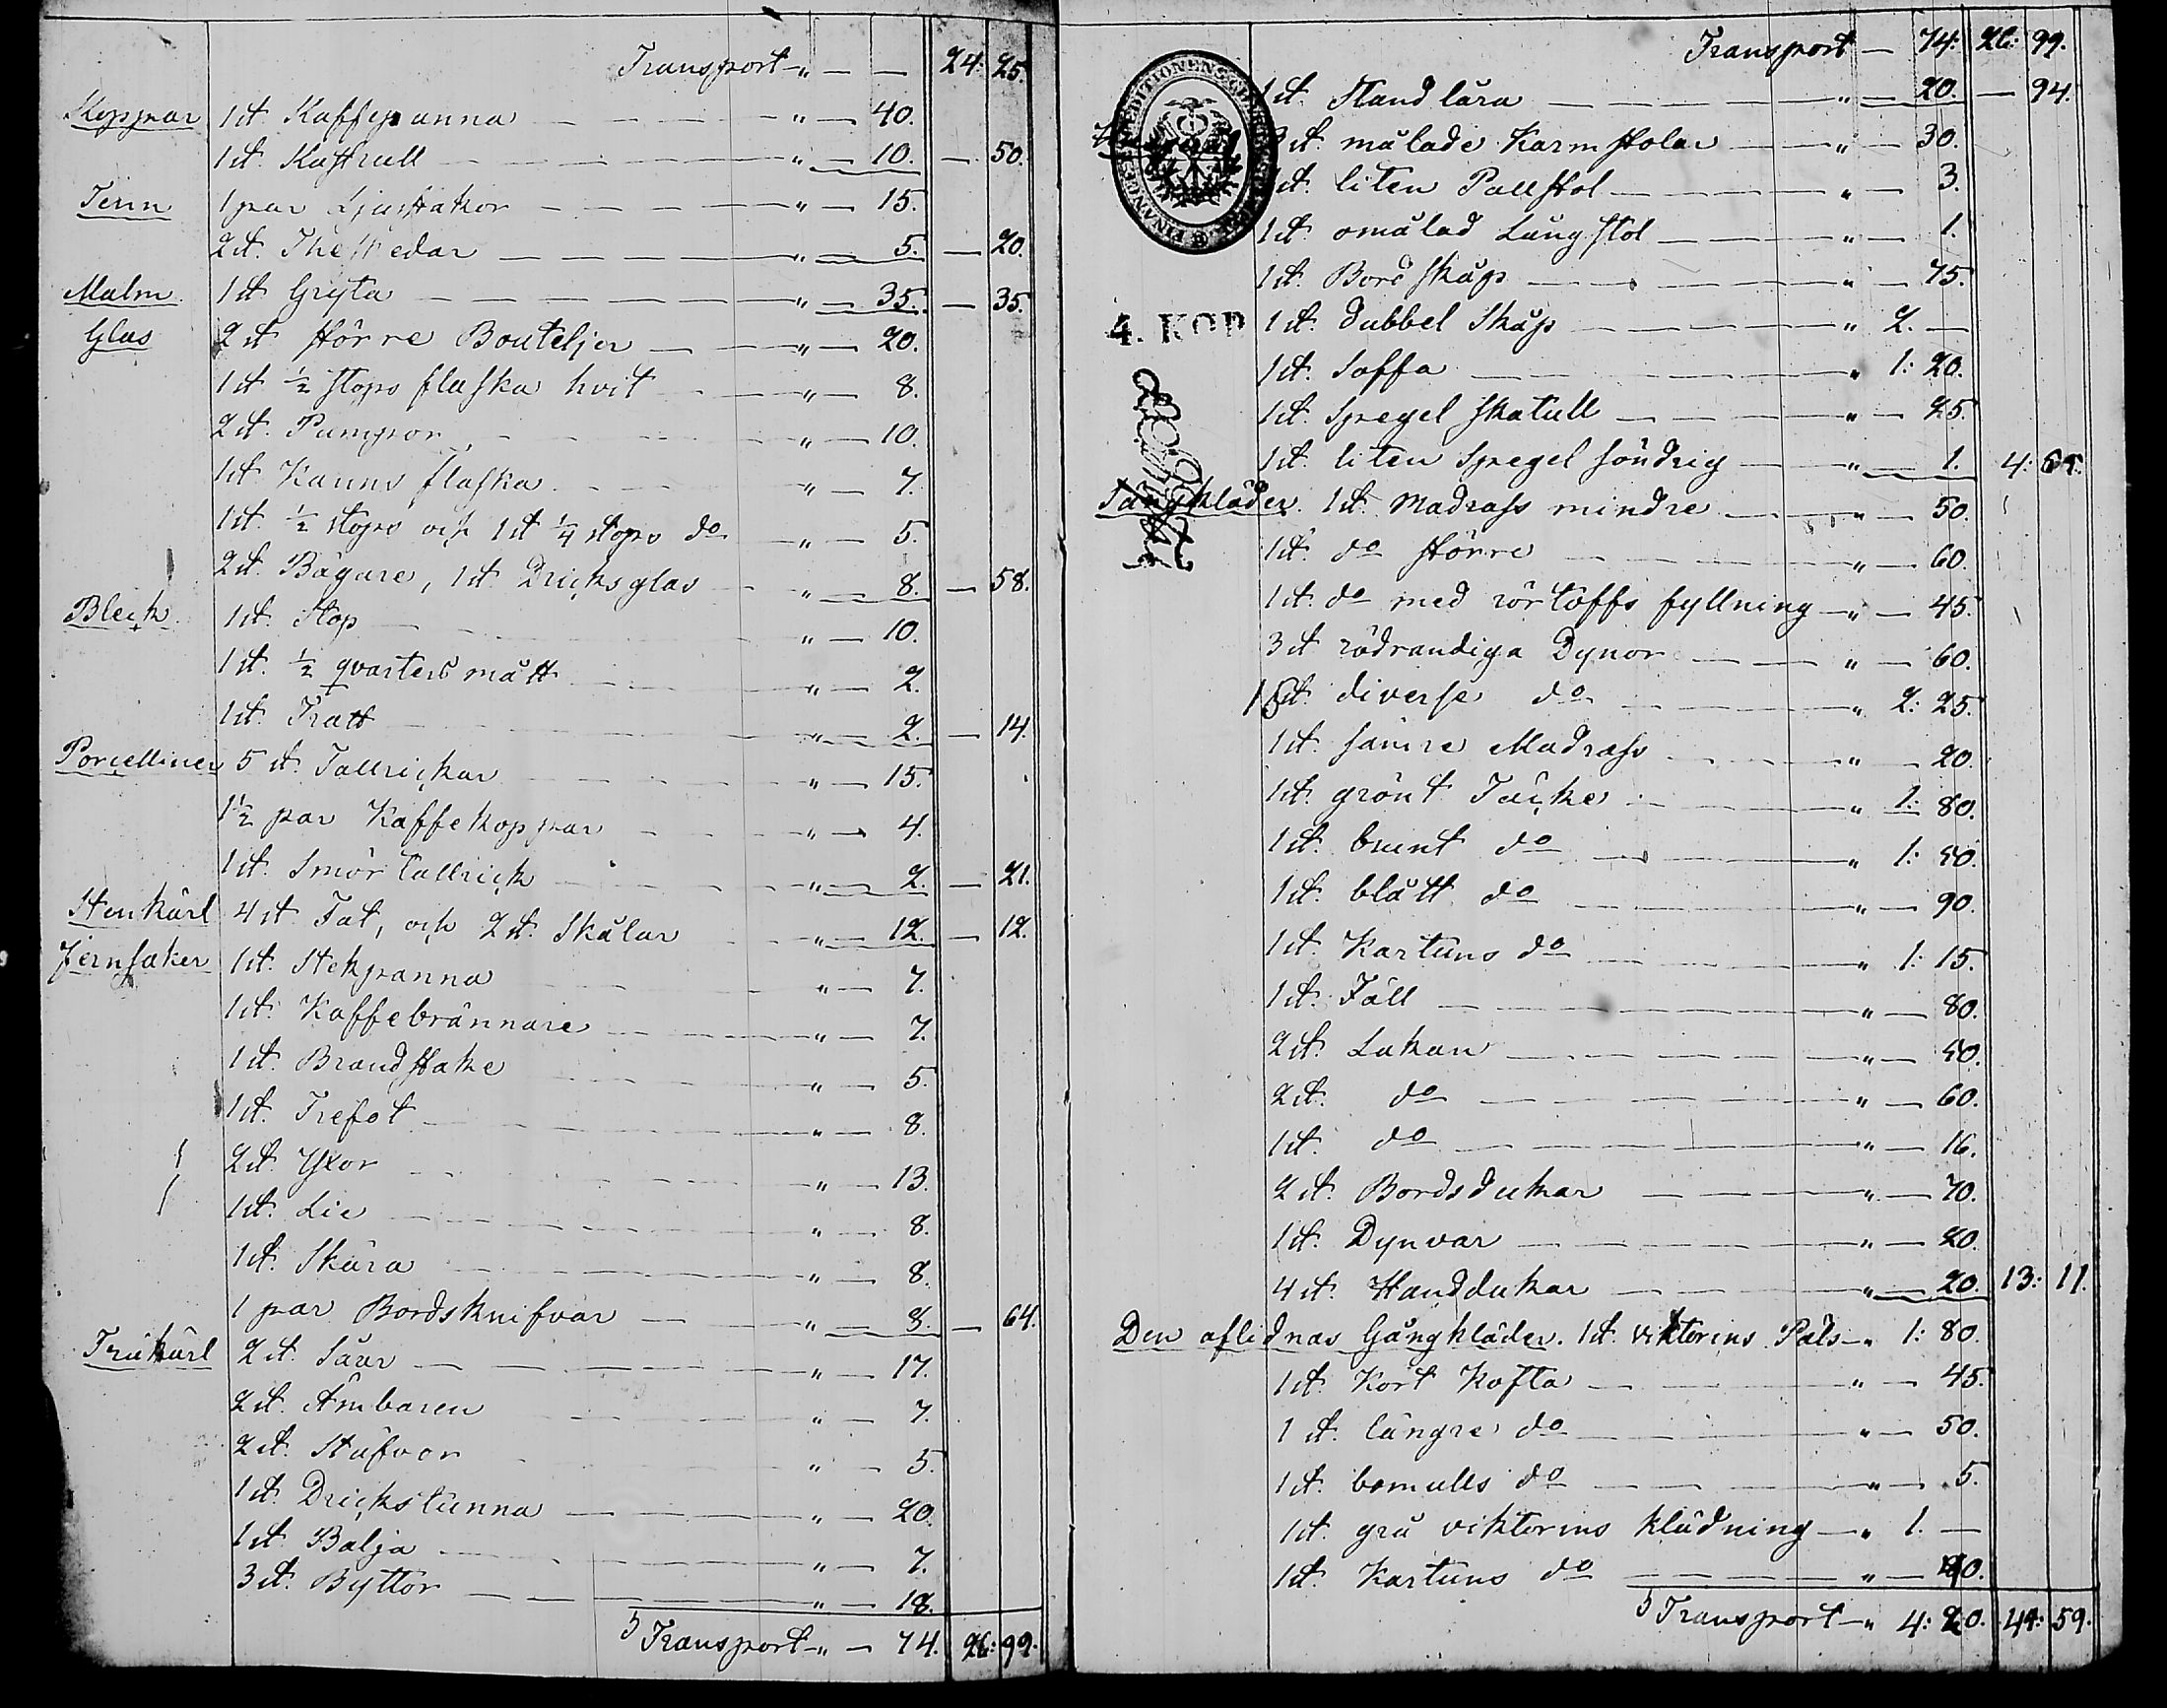 Transport " — — 24: 25.
Koppar 1 st. Kaffepanna " — 40.
1 st. Kastrull " — 10. — 50.
Tenn 1 par Ljusstakar " — 15.
2 st. Theskedar " — 5. — 20.
Malm 1 st Gryta " — 35. — 35.
Glas 2 st större Bouteljer " — 20.
1 st ½ stops flaska hvit " — 8.
2 st. Pumpor " — 10.
1 st. Kanns flaska " — 7.
1 st. ½ stops och 1 st ¼ stops do " — 5.
2 st. Bägare, 1 st Dricksglas " — 8. — 58.
Bleck 1 st. Stop " — 10.
1 st. ½ qvarters mått " — 2.
1 st. Tratt " — 2. — 14.
Porcelliner 5 st. Tallrickar " — 15.
1½ par Kaffekoppar " — 4.
1 st. Smör tallrick " — 2. — 21.
Stenkärl 4 st Fat, och 2 st. Skålar " — 12. — 12.
Jernsaker 1 st. Stekpanna " — 7.
1 st. Kaffebrännare " — 7.
1 st. Brandstake " — 5.
1 st. Trefot " — 8.
2 st. Yxor " — 13.
1 st. Lie " — 8.
1 st. Skära " — 8.
1 par Bordsknifvar " — 8. — 64.
Träkärl 2 st. Såar " — 17.
2 st. Ämbaren " — 7.
2 st. Stäfvor " — 5.
1 st. Drickstunna " — 20.
1 st. Balja " — 7.
3 st. Byttor " — 18.
Transport " — 74. 26: 99.
Transport — 74. 26: 99.
1 st. Tland lära " — 20. — 94.
3 st. målade Karmstolar " — 30.
1 st. liten Pallstol " — 3.
1 st. omålad Långstol " — 1.
1 st. Bordskåp " — 75.
4. KOP
1 st. dubbel Skåp " 2. —
1 st. Soffa " 1: 20.
1 st. Spegel skatull " — 25.
1 st. liten Spegel söndrig " — 1. 4: 65.
Sängkläder. 1 st. Madrass mindre " — 50.
1 st. do större " — 60.
1 st. do med rörtoffs fyllning " — 45.
3 st rödrandiga Dynor " — 60.
15 st. diverse do " 2: 25.
1 st. sämre Madrass " — 20.
1 st. grönt Täcke " 1: 80.
1 st. brunt do " 1: 50.
1 st. blått do " — 90.
1 st. Kartuns do " 1: 15.
1 st. Fäll " — 80.
2 st. Lakan " — 50.
2 st. do " — 60.
1 st. do " — 16.
2 st. Bordsdukar " — 70.
1 st. Dynvar " — 20.
4 st. Handdukar " — 20. 13: 11.
Den aflidnas Gångkläder. 1 st. viktorins Päls " 1: 80.
1 st. Kort Kofta " — 45.
1 st. längre do " — 50.
1 st. bomulls do " — 5.
1 st. grå viktorins klädning " 1. —
1 st. Kartuns do " — 40.
Transport " 4: 20. 44: 59.